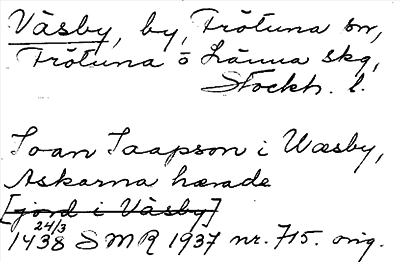 Väsby, by, Frötuna sn,
Frötuna o Länna skg,
Stockh. l.
Joan Jaapson i Wæsby,
Askarna hærade
[gjord i Väsby]
24/3
1438 SMR 1937 nr. 715. orig.